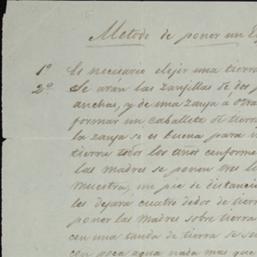 Metodo de poner un
1º Es necesario elejir una tierra
2º Se arán las zanjillas de dos
anchas, y de una zanja á otra
formar un caballete de tierra
la zanja si es buena para
tierra todos los años conforme
Las madres se ponen tres
muestra, un pie de distancia
les dejará cuatro dedos de tierra
poner las madres sobre tierra
con una tanda de tierra se
con poca agua nada mas que